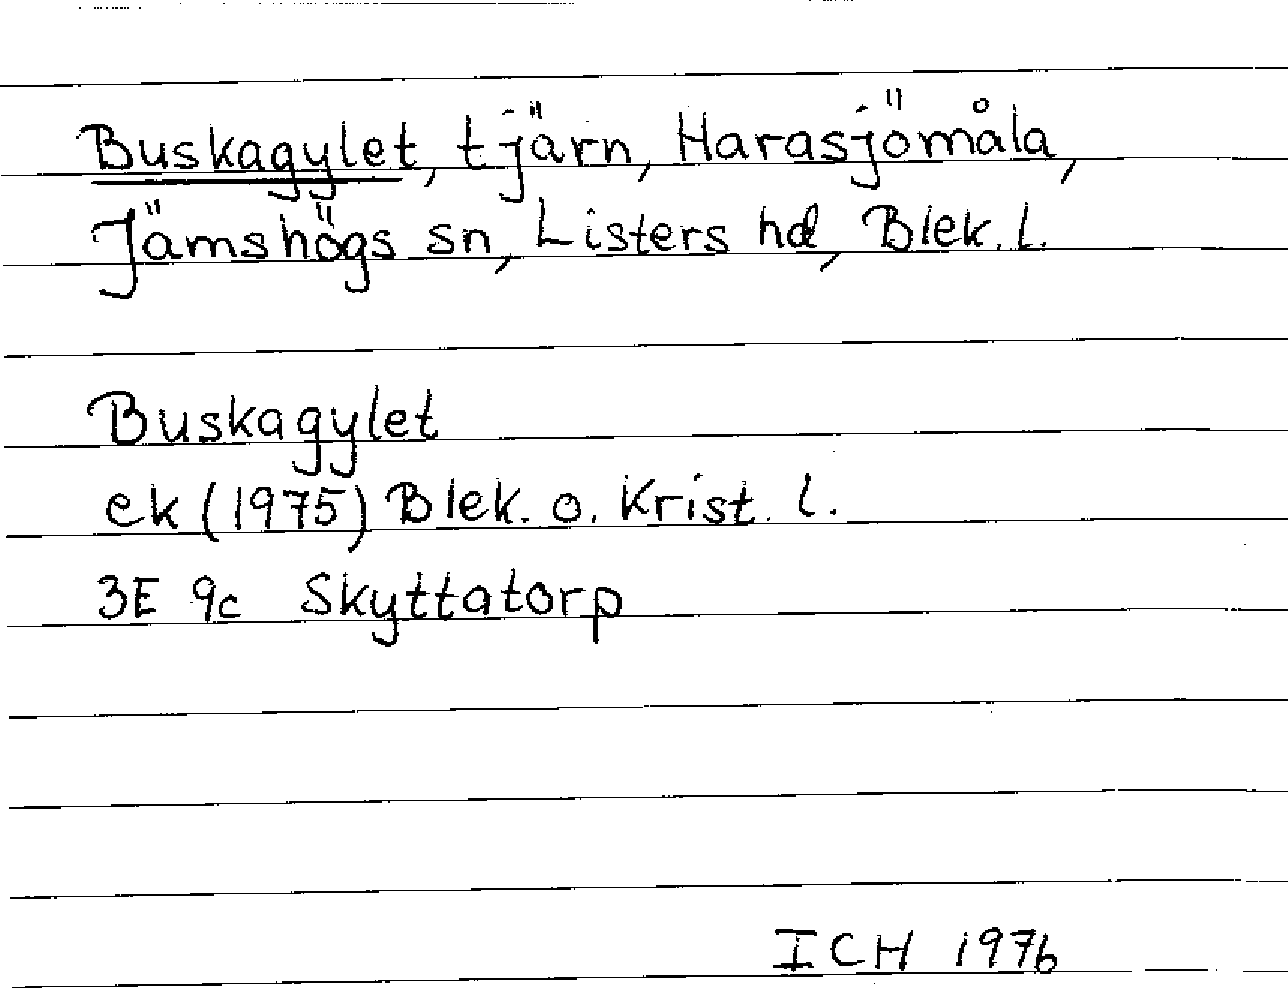 Buskagylet, tjärn, Harasjömåla,
Jämshögs sn, Listers hd, Blek. l.
Buskagylet
ek (1975) Blek. o. Krist. l.
3E 9c Skyttatorp
ICH 1976